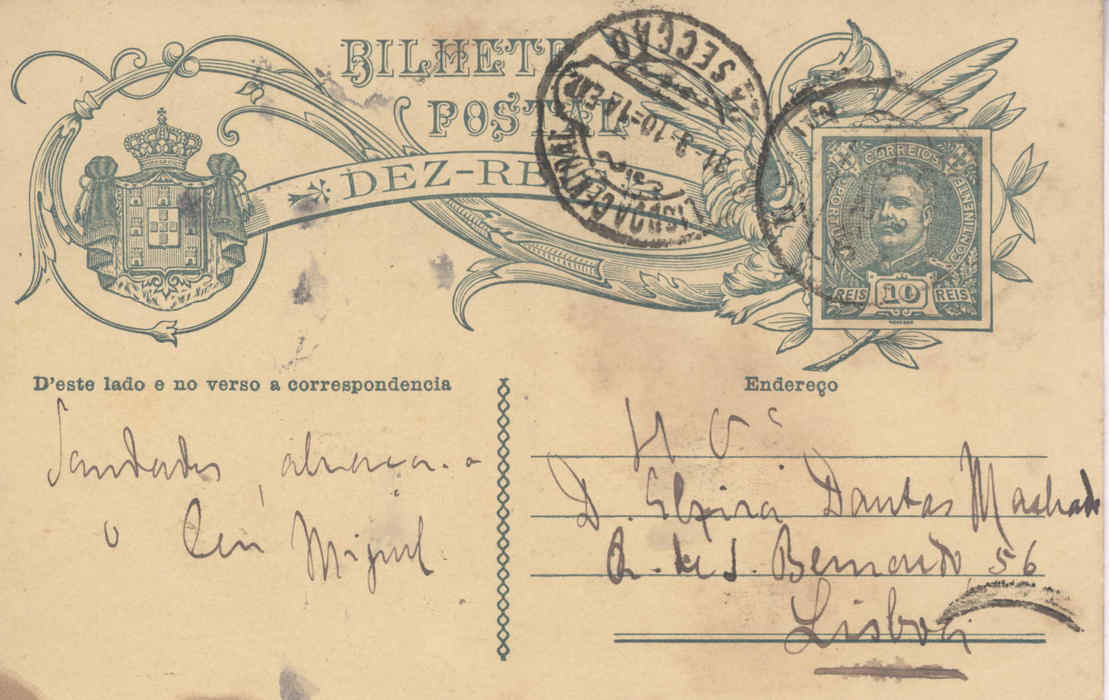 BILHETE
POSTAL
DEZ-RE
LISBOA CENTRAL
SECÇÃO
31-3-10
CORREIOS
PORTUGAL
CONTINENTE
REIS 10 REIS
D'este lado e no verso a correspondencia
Saudades, abraça-o
o Miguel.
Endereço
D. Elzira Dantas Machado
R. de S. Bernardo, 56
Lisboa